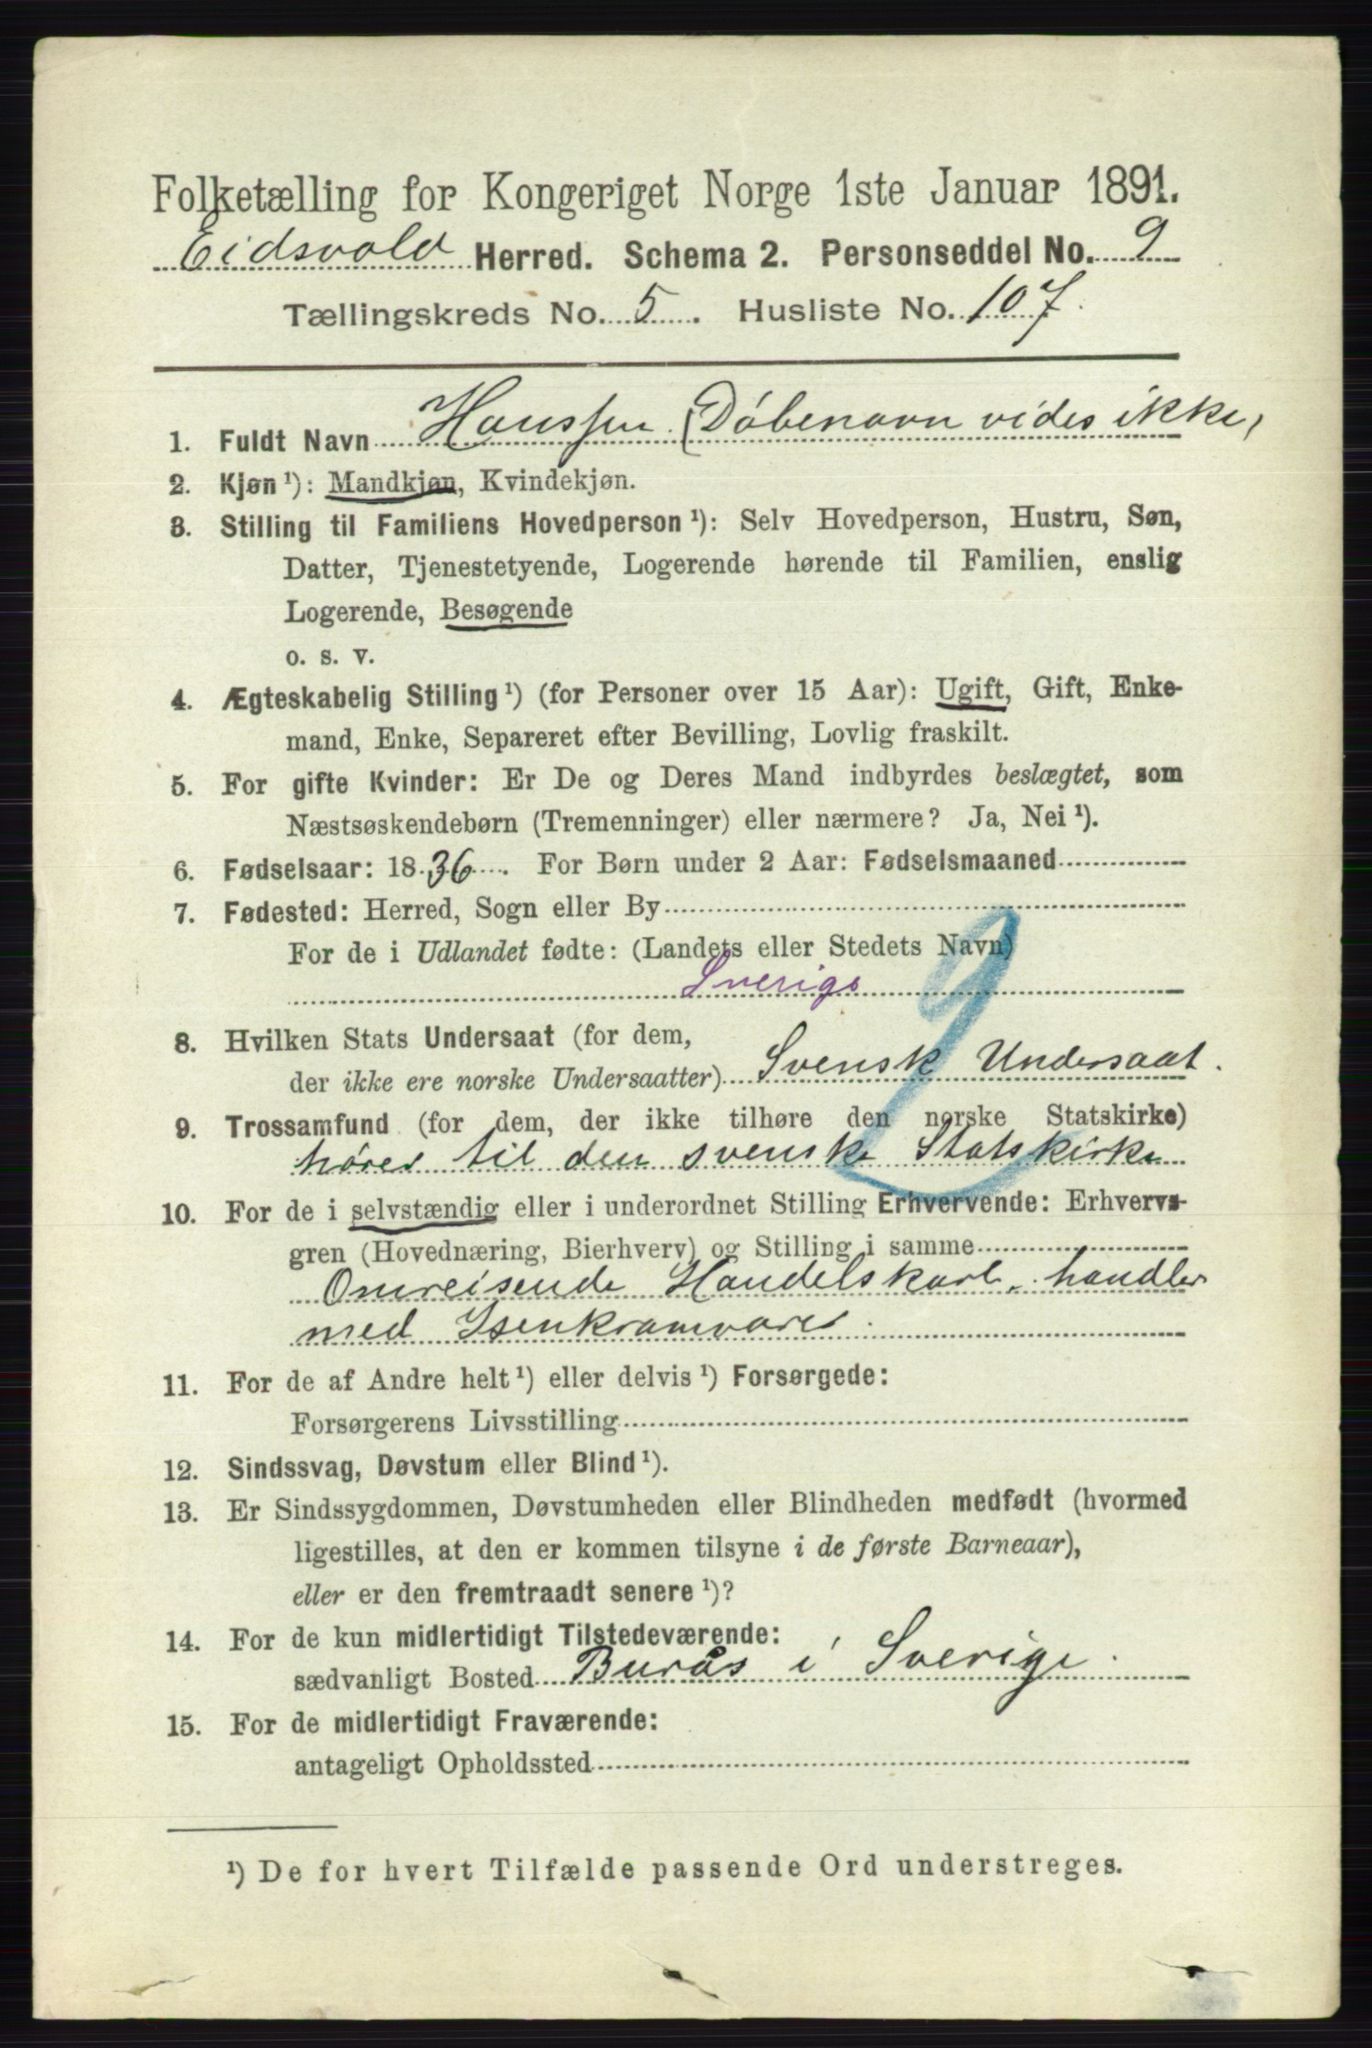 Folketælling for Kongeriget Norge 1ste Januar 1891.
Eidsvold Herred. Schema 2. Personseddel No. 9
Tællingskreds No. 5. Husliste No. 107.
1. Fuldt Navn Hanssen (Döbenavn vides ikke)
2. Kjøn ¹): Mandkjøn, Kvindekjøn.
3. Stilling til Familiens Hovedperson ¹): Selv Hovedperson, Hustru, Søn,
Datter, Tjenestetyende, Logerende hørende til Familien, enslig
Logerende, Besøgende
o. s. v.
4. Ægteskabelig Stilling ¹) (for Personer over 15 Aar): Ugift, Gift, Enke-
mand, Enke, Separeret efter Bevilling, Lovlig fraskilt.
5. For gifte Kvinder: Er De og Deres Mand indbyrdes beslægtet, som
Næstsøskendebørn (Tremenninger) eller nærmere? Ja, Nei ¹).
6. Fødselsaar: 1836. For Børn under 2 Aar: Fødselsmaaned
7. Fødested: Herred, Sogn eller By
For de i Udlandet fødte: (Landets eller Stedets Navn)
Sverige
9
8. Hvilken Stats Undersaat (for dem,
der ikke ere norske Undersaatter) Svensk Undersaat.
9. Trossamfund (for dem, der ikke tilhøre den norske Statskirke)
hører til den svenske Statskirke
10. For de i selvstændig eller i underordnet Stilling Erhvervende: Erhvervs-
gren (Hovednæring, Bierhverv) og Stilling i samme
Omreisende Handelskarl, handler
med Isenkramvarer.
11. For de af Andre helt ¹) eller delvis ¹) Forsørgede:
Forsørgerens Livsstilling
12. Sindssvag, Døvstum eller Blind ¹).
13. Er Sindssygdommen, Døvstumheden eller Blindheden medfødt (hvormed
ligestilles, at den er kommen tilsyne i de første Barneaar),
eller er den fremtraadt senere ¹)?
14. For de kun midlertidigt Tilstedeværende:
sædvanligt Bosted Burås i Sverige.
15. For de midlertidigt Fraværende:
antageligt Opholdssted
¹) De for hvert Tilfælde passende Ord understreges.